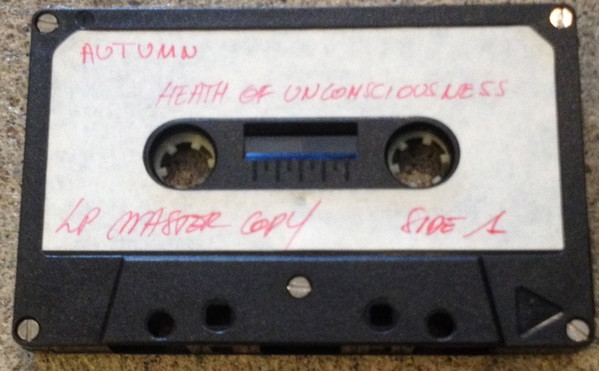 AUTUMN
HEATH OF UNCONSCIOUSNESS
LP MASTER COPY SIDE 1